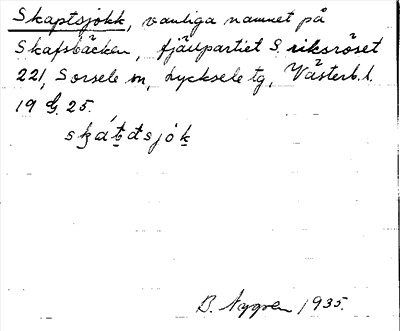 Skaptsjokk, vanliga namnet på
Skafsbäcken, fjällpartiet S. riksröset
221, Sorsele sn, Lycksele tg, Västerb. l.
19 G. 25.
sḵáṯḏtsjóḵ
B. Nygren 1935.